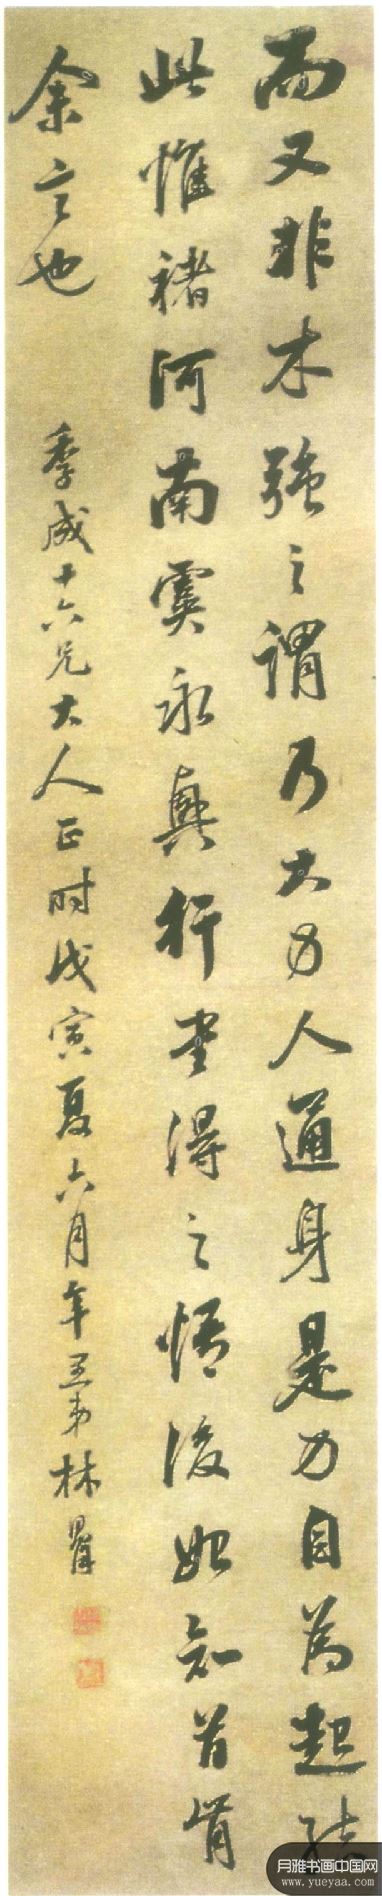 而又非木強之謂乃大力人通身是力自為起結
此惟褚河南虞永興行書得之悟後始知首肯
余言也
季成十六兄大人正时戊寅夏六月年弟林
月雅书画中国网
www.yueyaa.com